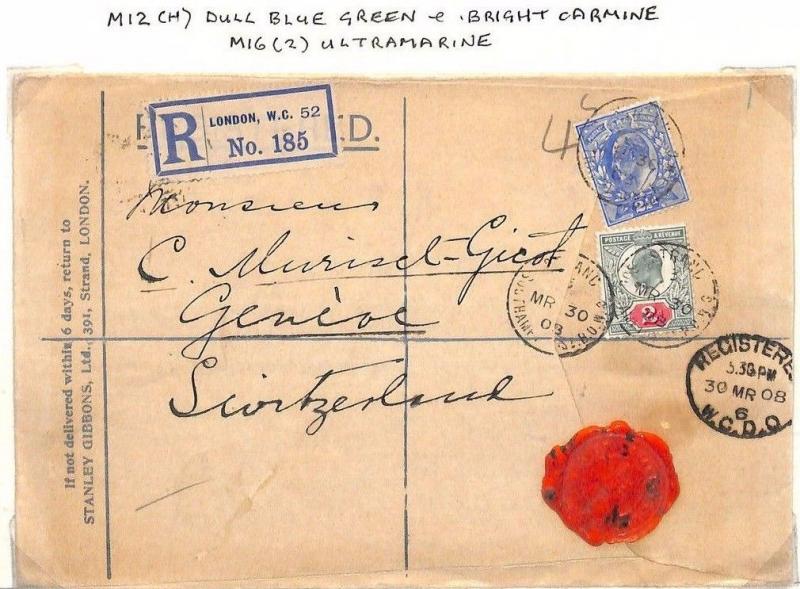 M12 (H) DULL BLUE GREEN & BRIGHT CARMINE
M16 (2) ULTRAMARINE
R
LONDON, W.C. 52
No. 185
D.
If not delivered within 6 days, return to
STANLEY GIBBONS, Ltd., 391, Strand, LONDON.
Monsieur
C. Muriset-Gicot
Genève
Switzerland
4
POSTAGE & REVENUE
STRAND
MR 30
08
SOUTHAMPTON
STRAND
MR 30
08
REGISTERE
5.30 PM
30 MR 08
6
W.C.D.O.